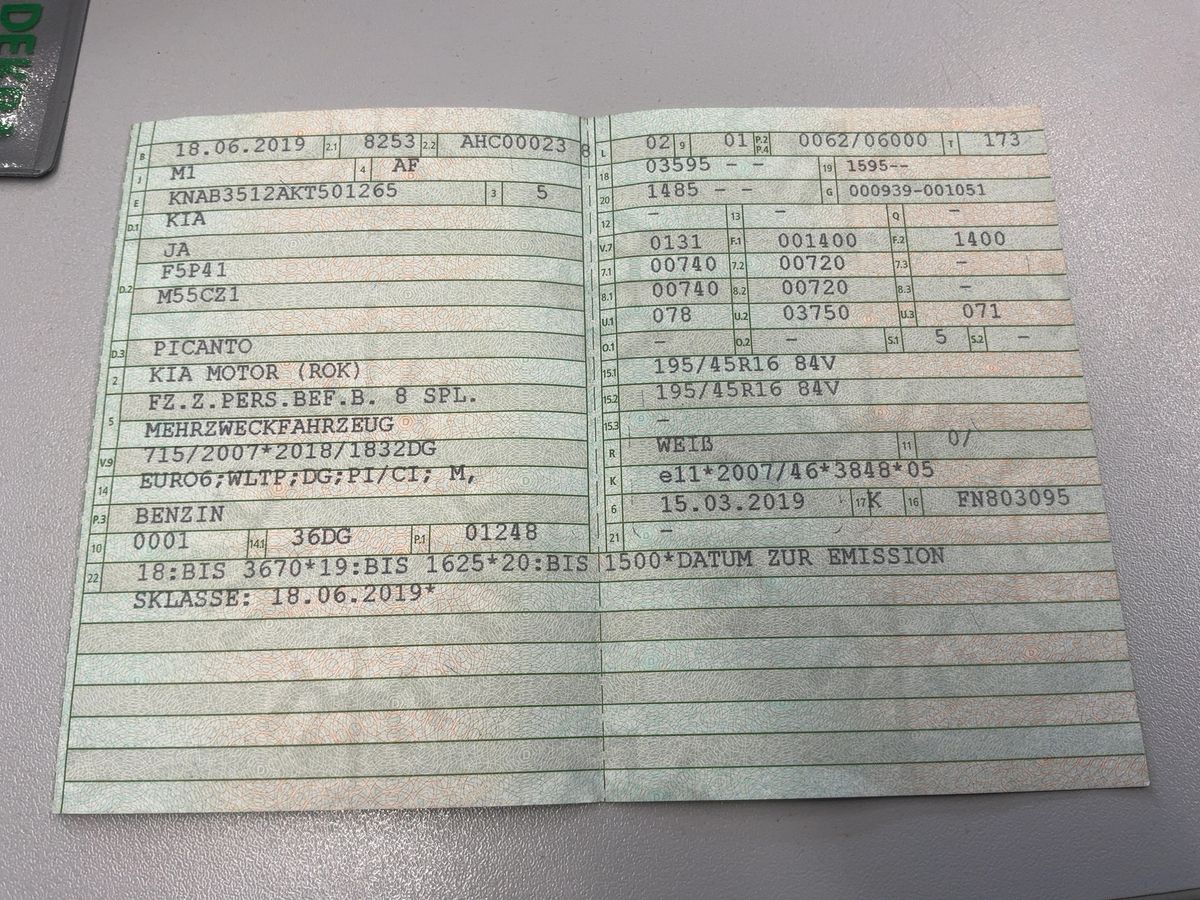 DEKRA
B 18.06.2019 2.1 8253 2.2 AHC00023 8
J M1 4 AF
E KNAB3512AKT501265 3 5
D.1 KIA
JA
D.2 F5P41
M55CZ1
D.3 PICANTO
2 KIA MOTOR (ROK)
FZ.Z.PERS.BEF.B. 8 SPL.
5 MEHRZWECKFAHRZEUG
V.9 715/2007*2018/1832DG
14 EURO6;WLTP;DG;PI/CI; M,
P.3 BENZIN
10 0001 14.1 36DG P.1 01248
L 02 9 01 P.2 P.4 0062/06000 T 173
18 03595 - - 19 1595--
20 1485 - - G 000939-001051
12 - 13 - Q -
V.7 0131 F.1 001400 F.2 1400
7.1 00740 7.2 00720 7.3 -
8.1 00740 8.2 00720 8.3 -
U.1 078 U.2 03750 U.3 071
O.1 - O.2 - S.1 5 S.2 -
15.1 195/45R16 84V
15.2 195/45R16 84V
15.3 -
R WEIß 11 0/
K e11*2007/46*3848*05
6 15.03.2019 17 K 16 FN803095
21 -
22 18:BIS 3670*19:BIS 1625*20:BIS 1500*DATUM ZUR EMISSION
SKLASSE: 18.06.2019*